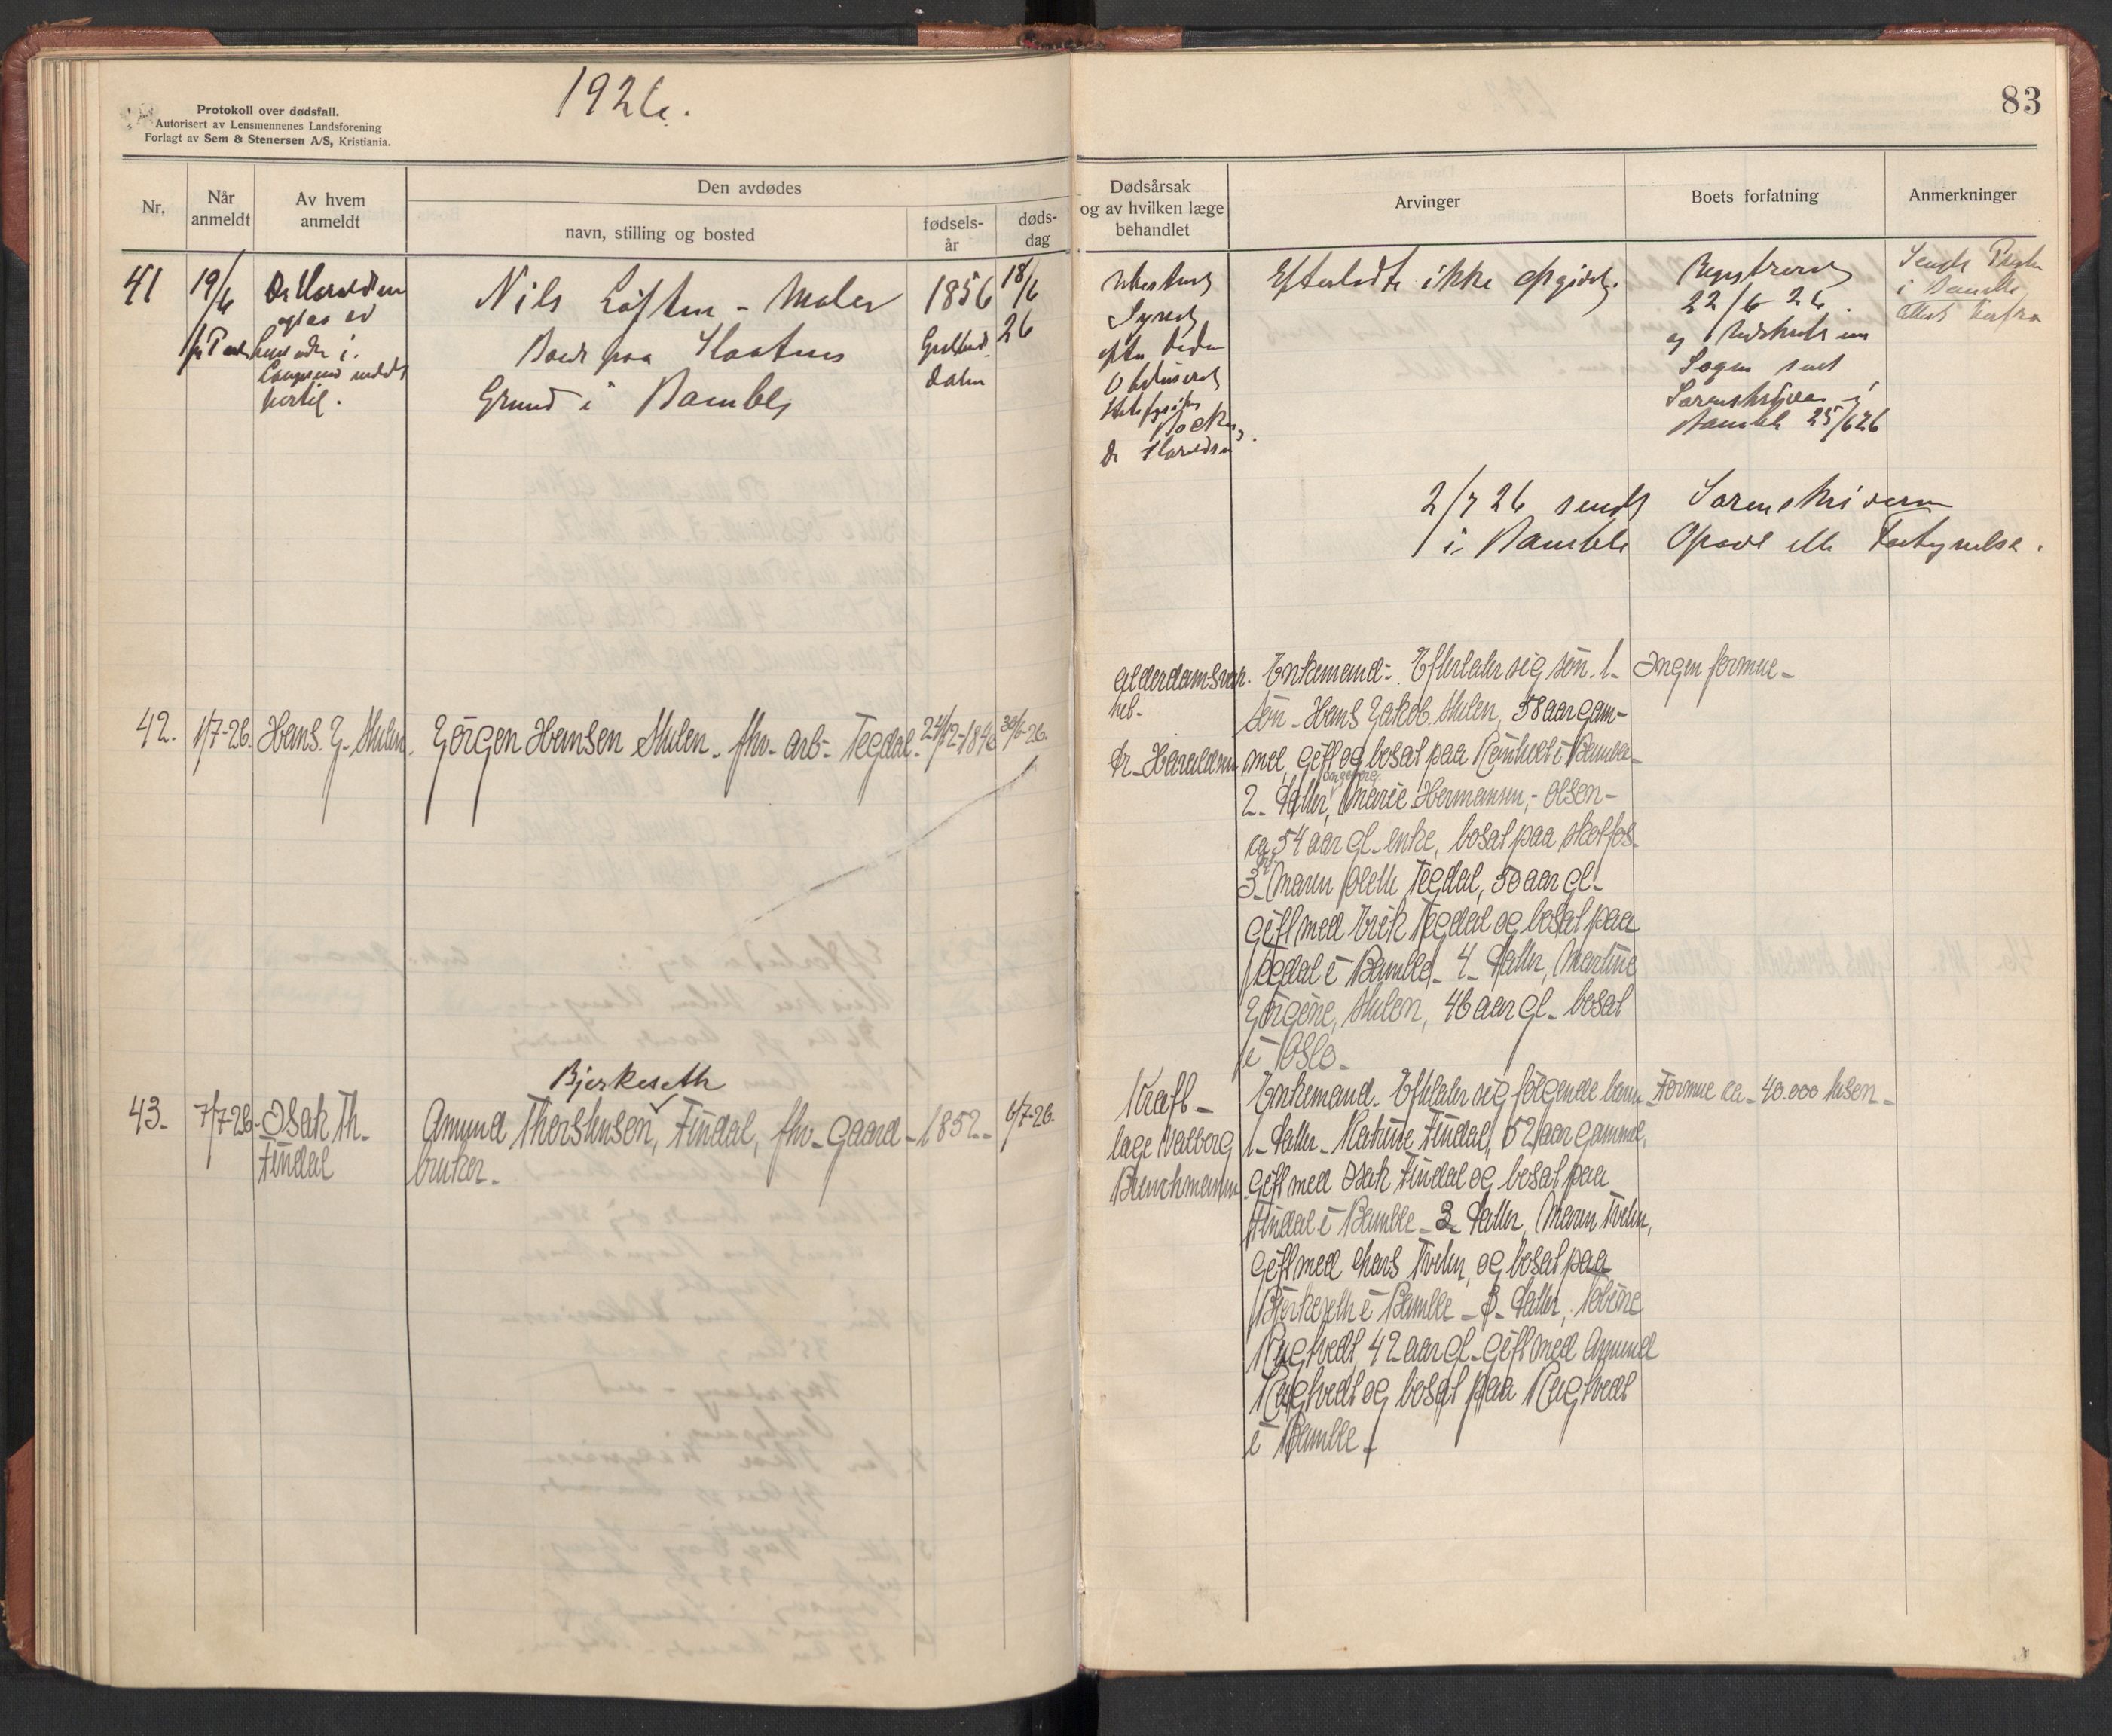 Protokoll over dødsfall.
Autorisert av Lensmennenes Landsforening
Forlagt av Sem & Stenersen A/S, Kristiania.
1926.
83
Nr.
Når
anmeldt
Av hvem
anmeldt
Den avdødes
navn, stilling og bosted
fødsels-
år
døds-
dag
Dødsårsak
og av hvilken læge
behandlet
Arvinger
Boets forfatning
Anmerkninger
41
19/6
Nils Loften - Maler
Boed paa
Grund i Bamble
1856
18/6
26
Dr
Efterladte ikke opgivet.
Registreret
22/6 26.
og Udskrift
Sagen sent
Sorenskriver i
Bamble 25/6 26
Sendt
i Bamble
2/7 26 sendt Sorenskriveren
i Bamble
42.
1/7-26.
Hans J. Stulen.
Jörgen Hansen Stulen. fhv. arb- Tegdal.
30/6-26.
Alderdomsvæk.
heb-
Dr. Haraldsen
Enkemand-. Efterlater sig sön. 1-
sön - Hans Jakob Stulen, 58 aar gam-
mel, gift og bosat paa Rönholt i Bamble-
Ingeborg
2- datter, Marie Hermansen,- Olsen-
ca 54 aar gl- enke, bosat paa Skotfos-
3- Maren Olette Tegdal, 50 aar gl-
gift med Erik Tegdal og bosat paa
Tegdal i Bamble- 4- datter, Martine
Jörgine, Stulen, 46 aar gl- bosat
i Oslo-
Ingen formue-
43.
7/7-26-
Isak Th-
Findal
Bjerkeseth
Amund Thorstensen, Findal, fhv- gaard-
bruker-
1852-
6/7-26.
Kræft-
læge Valborg
Enkemand- Efterlater sig følgende barn-
1- datter- Katrine Findal, 52 aar gammel,
gift med Isak Findal og bosat paa
Findal i Bamble- 2- datter, Maren Tveten,
gift med Hans Tveten, og bosat paa
Bjerkeseth i Bamble- 3- datter, Tobine
Rugtvedt 42 aar gl- gift med Amund
Rugtvedt og bosat paa Rugtvedt
i Bamble-
Formue ca- 40.000 kroner-